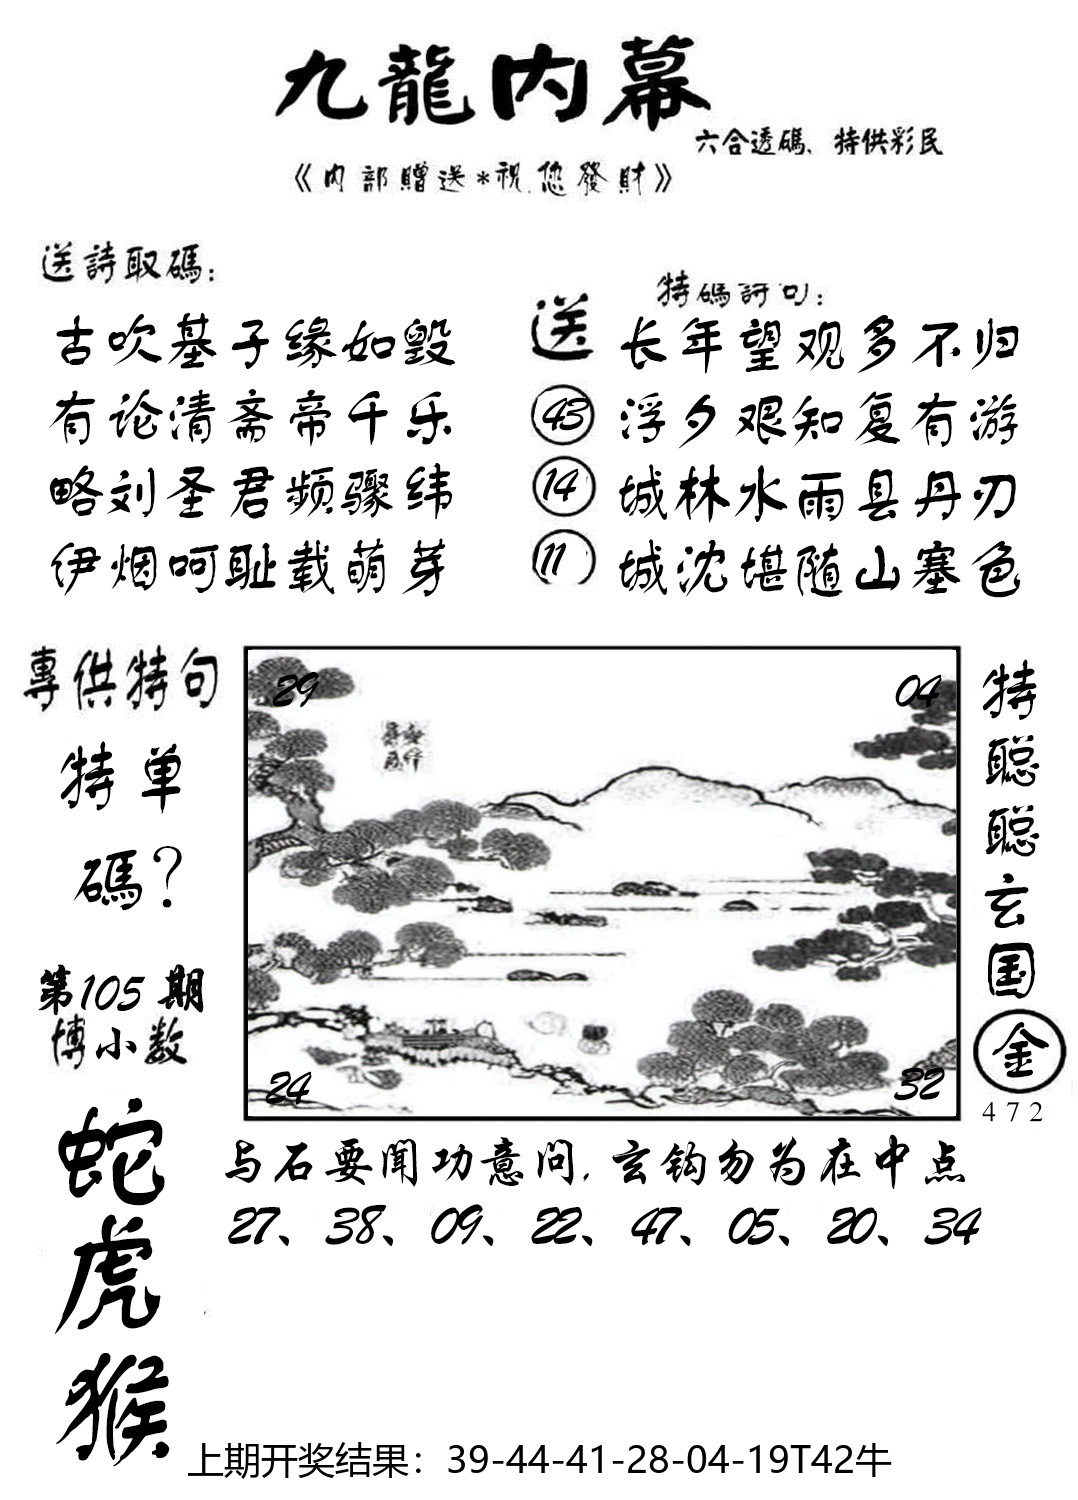 九龍内幕
六合透碼、特供彩民
《内部贈送*祝您發財》
送詩取碼：
古吹基子缘如毁
有论清斋帝千乐
略刘圣君频骤纬
伊烟呵耻载萌芽
送
43
14
11
特碼詩句：
长年望观多不归
浮夕艰知复有游
城林水雨县丹刃
城沈堪随山塞色
專供特句
特单
碼？
第105期
博小数
蛇
虎
猴
29
04
24
32
特聪聪玄国金
472
与石要闻功意问，玄钩勿为在中点
27、38、09、22、47、05、20、34
上期开奖结果：39-44-41-28-04-19T42牛